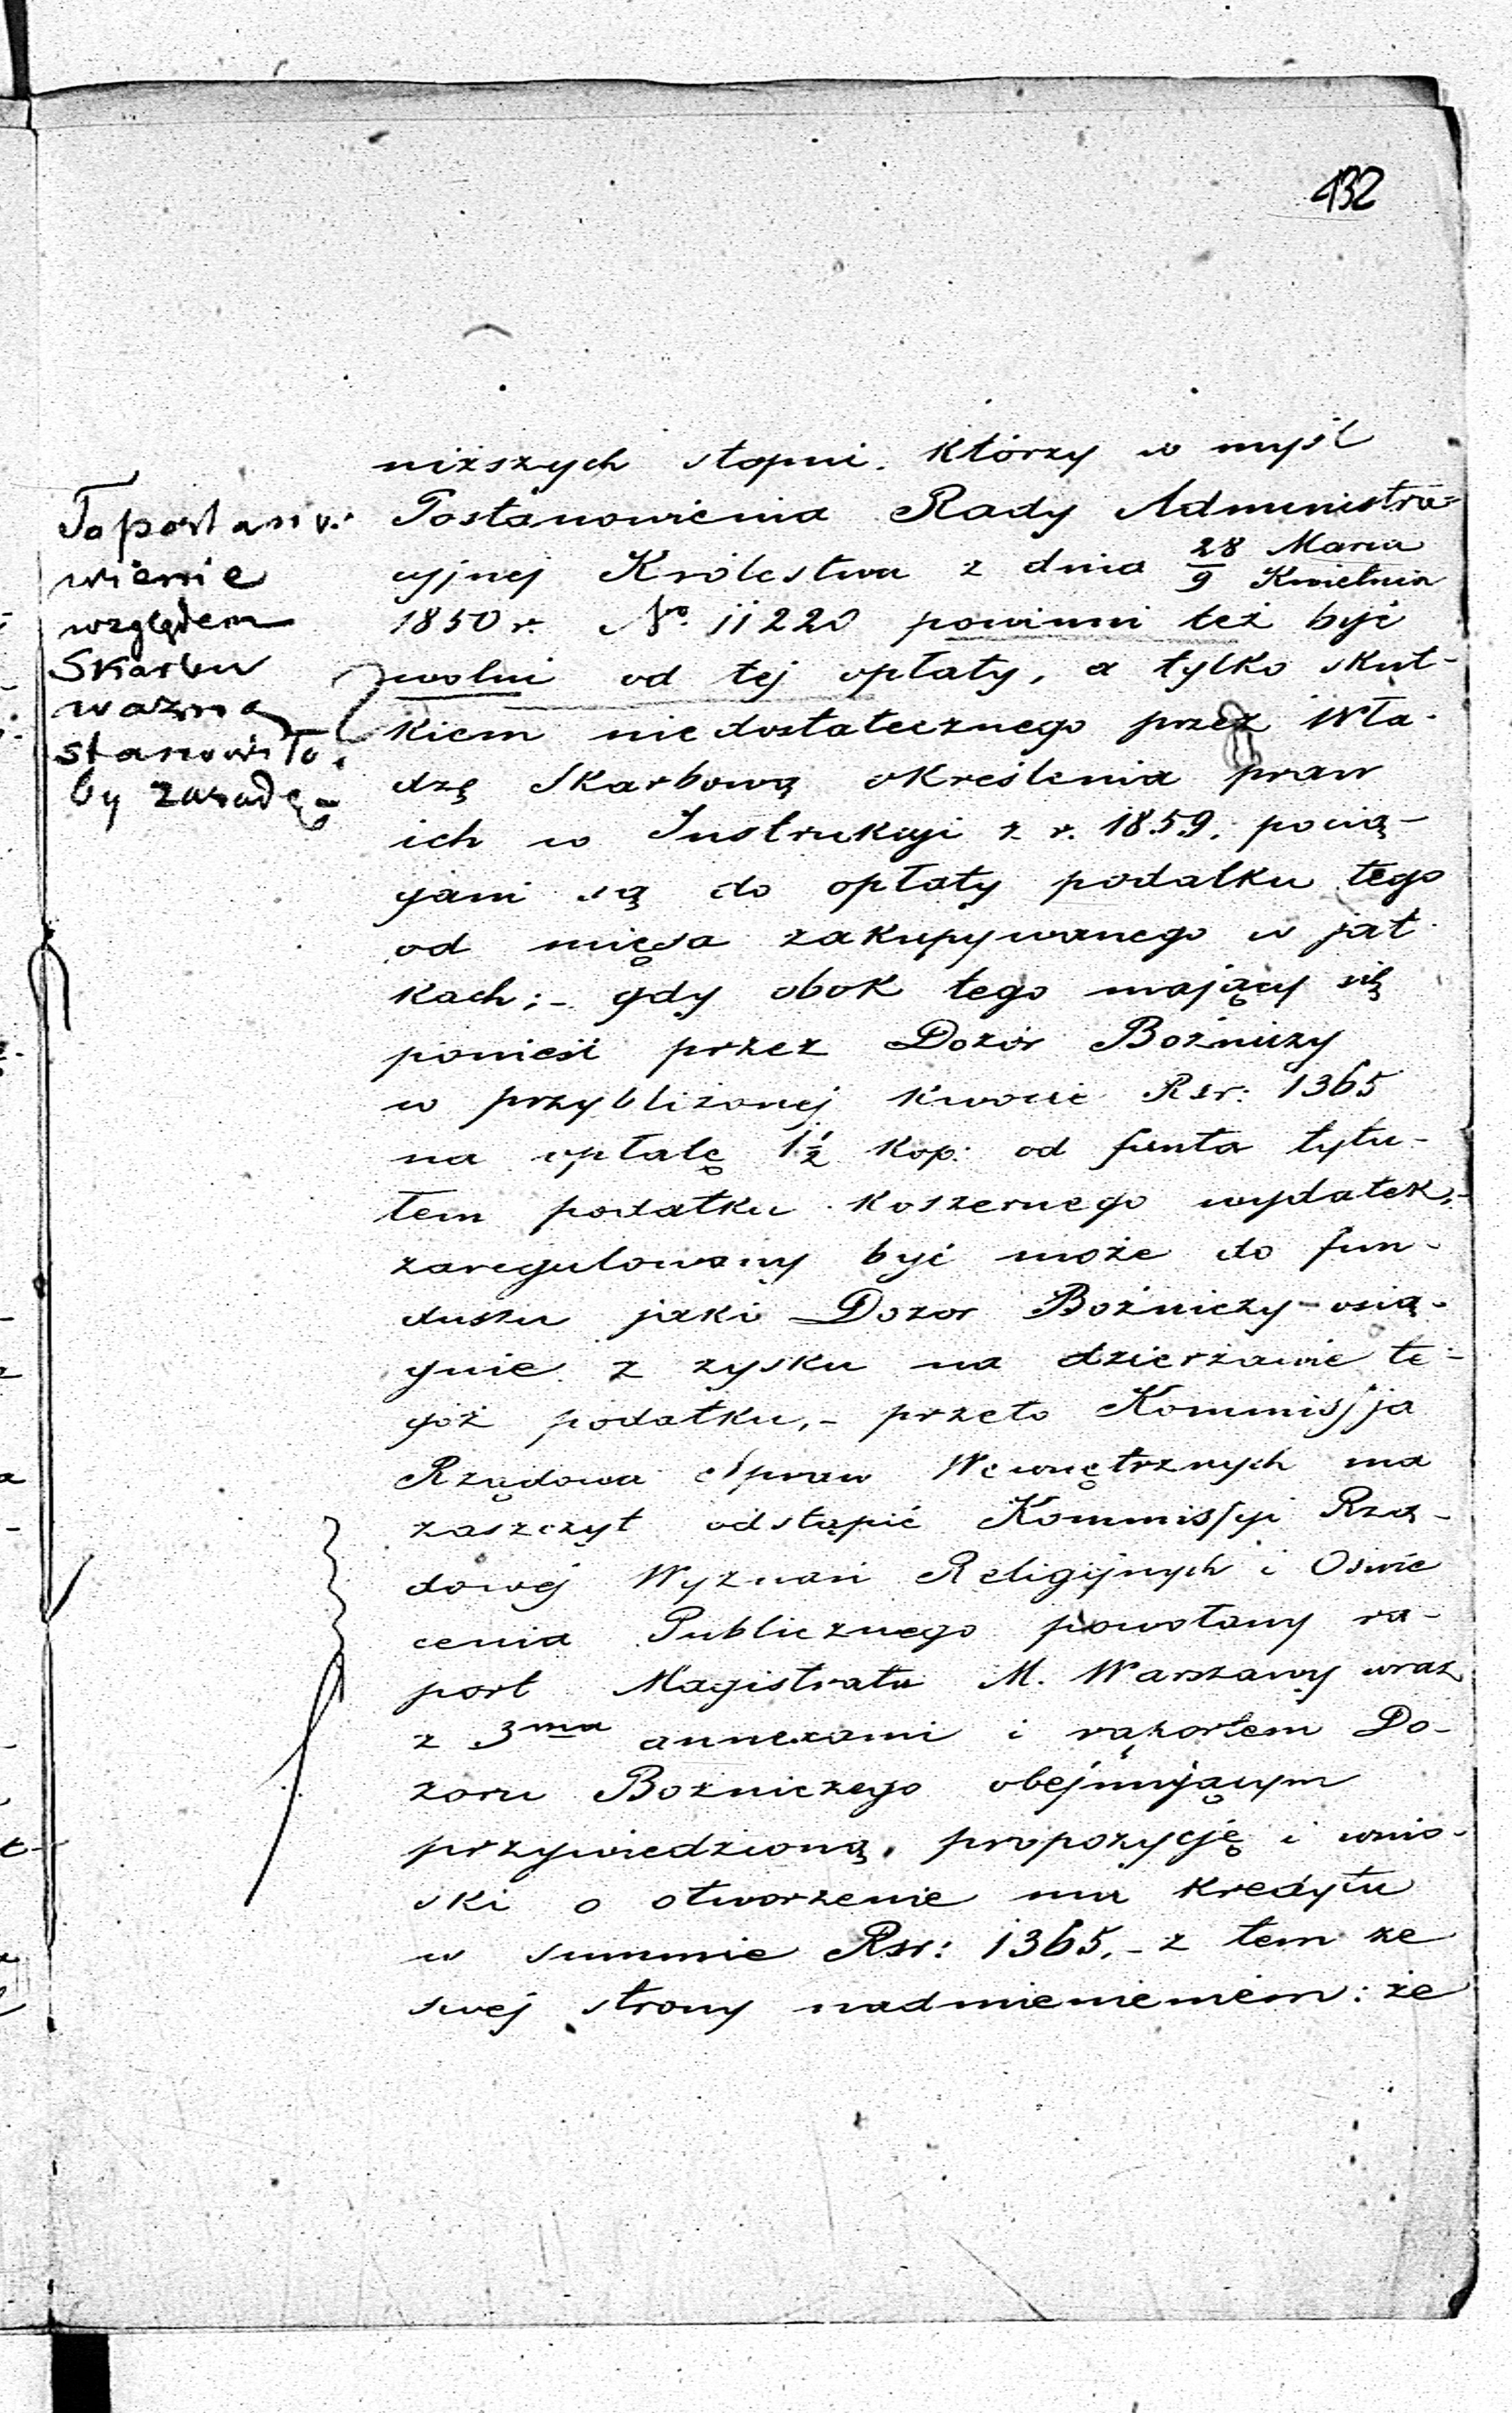 132
niższych stopni. którzy w myśl
Postanowienia Rady Administra=
cyjnej Królestwa z dnia 28 Marca / 9 Kwietnia
1850 r. No. 11220 powinni też być
wolni od tej opłaty, a tylko skut-
kiem niedostatecznego przez Wła-
dzę Skarbową określenia praw
ich w Instrukcyi z r. 1859. pocią-
gani są do opłaty podatku tego
od mięsa zakupywanego w jat
kach; - gdy obok tego mający się
ponieść przez Dozór Bożniczy
w przybliżonej kwocie Rsr: 1365
na opłatę 1½ kop: od funta tytu-
łem podatku koszernego wydatek,-
zaregulowany być może do fun-
duszu jaki Dozor Bożniczy osią-
gnie z zysku na dzierżawie te-
goż podatku, - przeto Kommissja
Rządowa Spraw Wewnętrznych ma
zaszczyt odstąpić Kommissyi Rzą-
dowej Wyznań Religijnych i Oświe
cenia Publicznego powołany ra-
port Magistratu M. Warszawy wraz
z 3ma annexami i raportem Do-
zoru Bożniczego obejmującym
przywiedzioną, propozycję i wnio-
ski o otworzenie mu kredytu
w summie Rsr: 1365. - z tem ze
swej strony nadmienieniem: że
To postano-
wienie
względem
Skarbu
ważną
stanowiło.
by zasadę